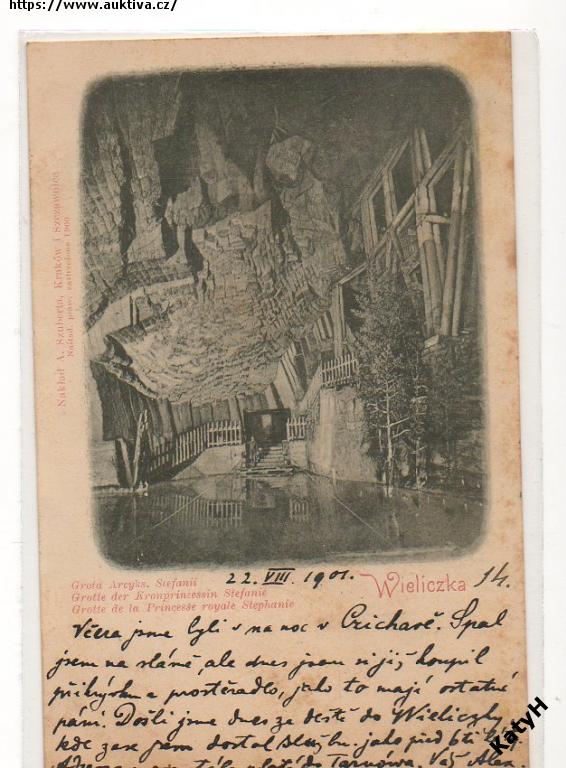 https://www.auktiva.cz/
Nakład A. Szuberta, Kraków i Szczawnica
Naślad. praw. zastrzeżone 1900
Grota Arcyks. Stefanii
Grotte der Kronprinzessin Stefanie
Grotte de la Princesse royale Stephanie
22. VIII. 1901.
Wieliczka
14.
Včera jsme byli v na noc v . Spal
jsem na slámě, ale dnes jsem si již koupil
přikrývku a prostěradlo, jako to mají ostatné
páni. Došli jsme dnes za deště do Wieliczky
kde zase jsem dostal službu jako před
do Tarnówa. Váš Alex.
KatyH